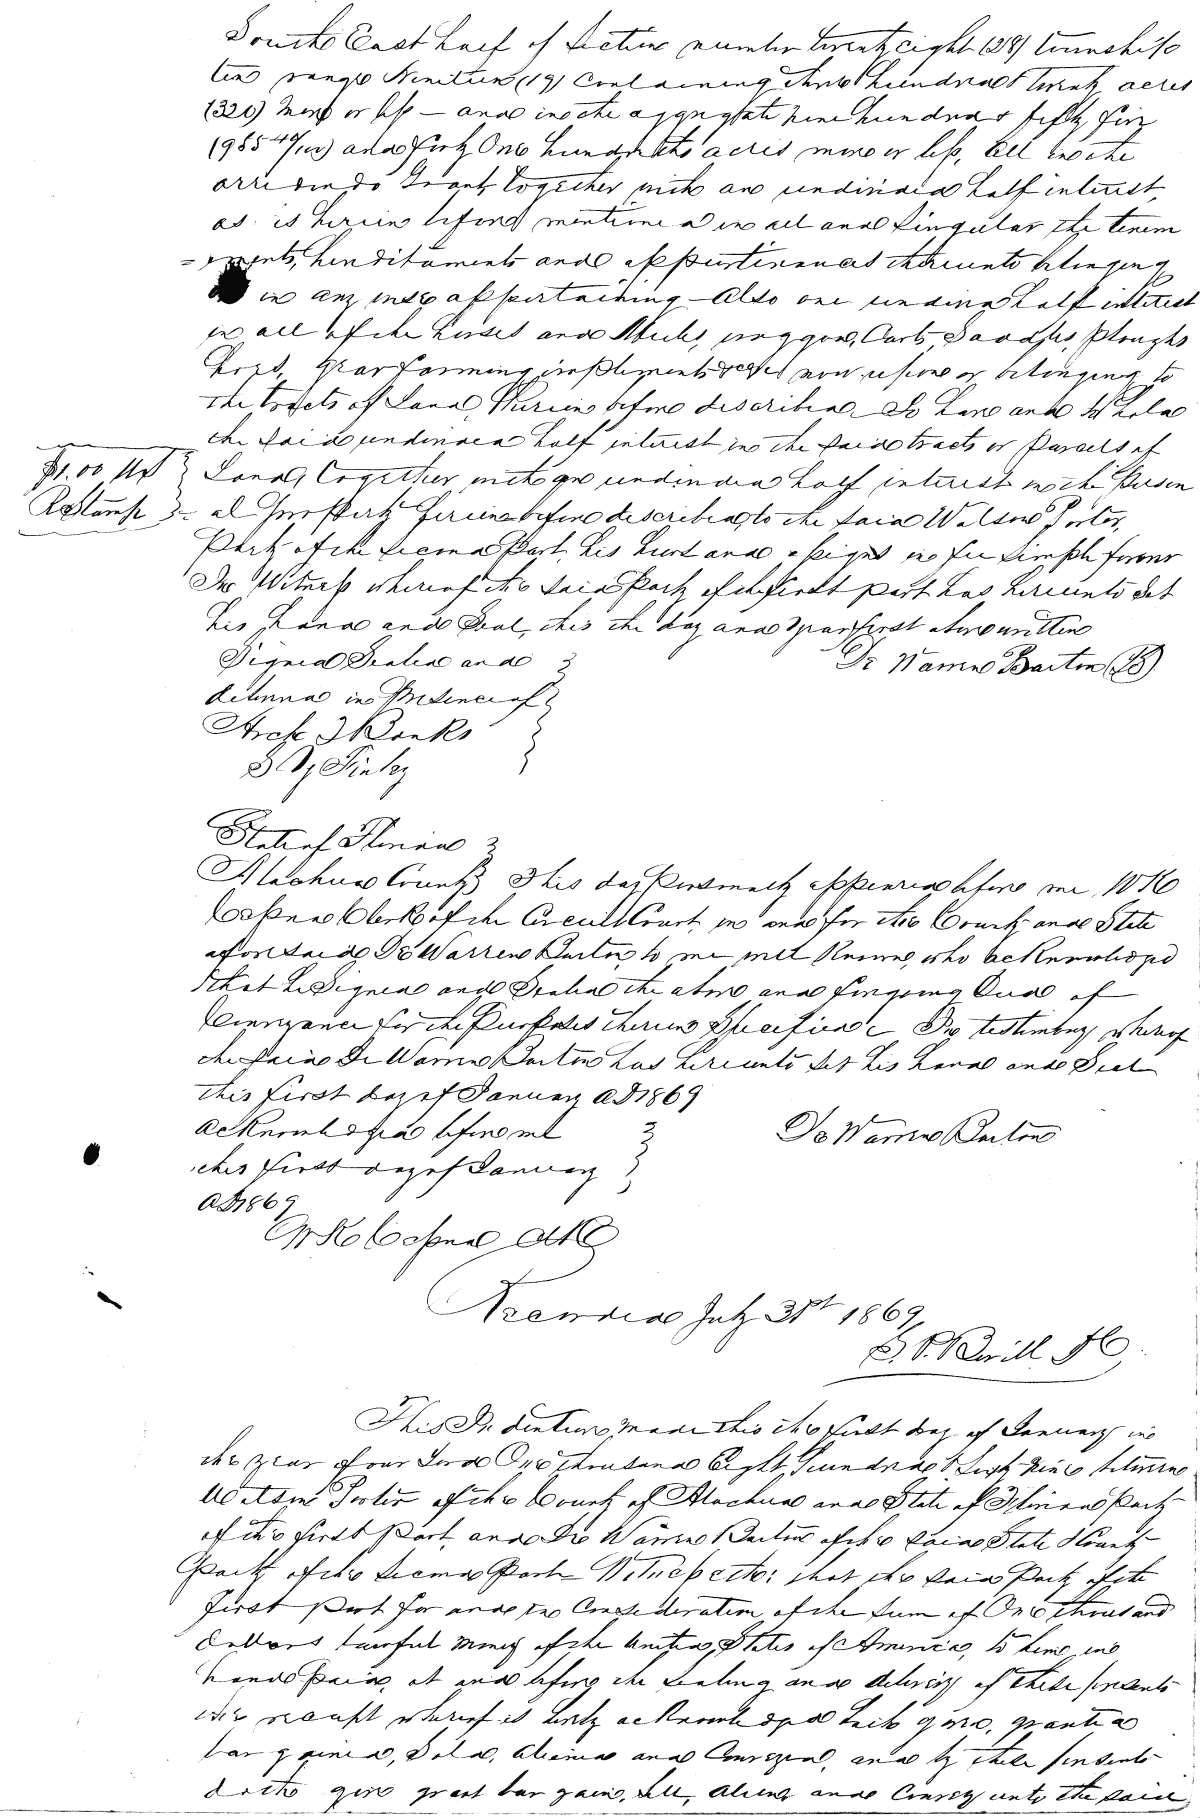 South East half of Section number twenty eight (28) township
ten range Nineteen (19) Containing three hundred & twenty acres
(320) more or less – and in the aggregate nine hundred & fifty five
(955 40/100) and forty One hundredths acres more or less, All in the
arredondo Grant together with an undivided half interest,
as is herein before mentioned in all and Singular the tenem
=ments, hereditaments and appurtenances thereunto belonging
or in any wise appertaining – Also one undivided half interest
in all of the horses and Mules, waggons, Carts, Saddles, Ploughs
Hoes, Gear farming implements now upon or belonging to
the tracts of Land, Herein before described To Have and to Hold
the said undivided half interest in the said tracts or parcels of
$1.00 US
Land, together with an undivided half interest in the Person
R Stamp
al Property herein before described, to the said Watson Porter,
Party of the second Part, his heirs and assigns in fee simple forever
In Witness whereof the said Party of the first part has hereunto Set
his Hand and Seal, this the day and year first above written
Signed Sealed and
De Warren Barton
delivered in Presence of
Arch Banks
Finley
State of Florida
Alachua County This day Personally appeared before me, W K
Cessna Clerk of the Circuit Court in and for the County and State
aforesaid, De Warren Barton, to me well Known, who acKnowledged
that he Signed and Sealed the above and foregoing Deed of
Conveyance for the Purposes therein Specified In testimony whereof
the said De Warren Barton has hereunto Set his Hand and Seal
this first day of January AD 1869
acKnowledged before me
De Warren Barton
this first day of January
AD 1869
W K Cessna Clk
Recorded July 31st 1869,
This Indenture, made this the first day of January in
the year of our Lord One thousand Eight Hundred & Sixty Nine between
Watson Porter of the County of Alachua and State of Florida Party
of the first Part, and De Warren Barton of the said State & County
Party of the second Part – Witnesseth: that the said Party of the
first part for and in Consideration of the Sum of One thousand
dollars lawful money of the United States of America, to him in
hand Paid, at and before the sealing and delivery of these presents
the receipt whereof is hereby acKnowledged hath given, granted
bargained, Sold, Aliened and Conveyed, and by these presents
doth give grant bargain, sell, alien, and Convey unto the said